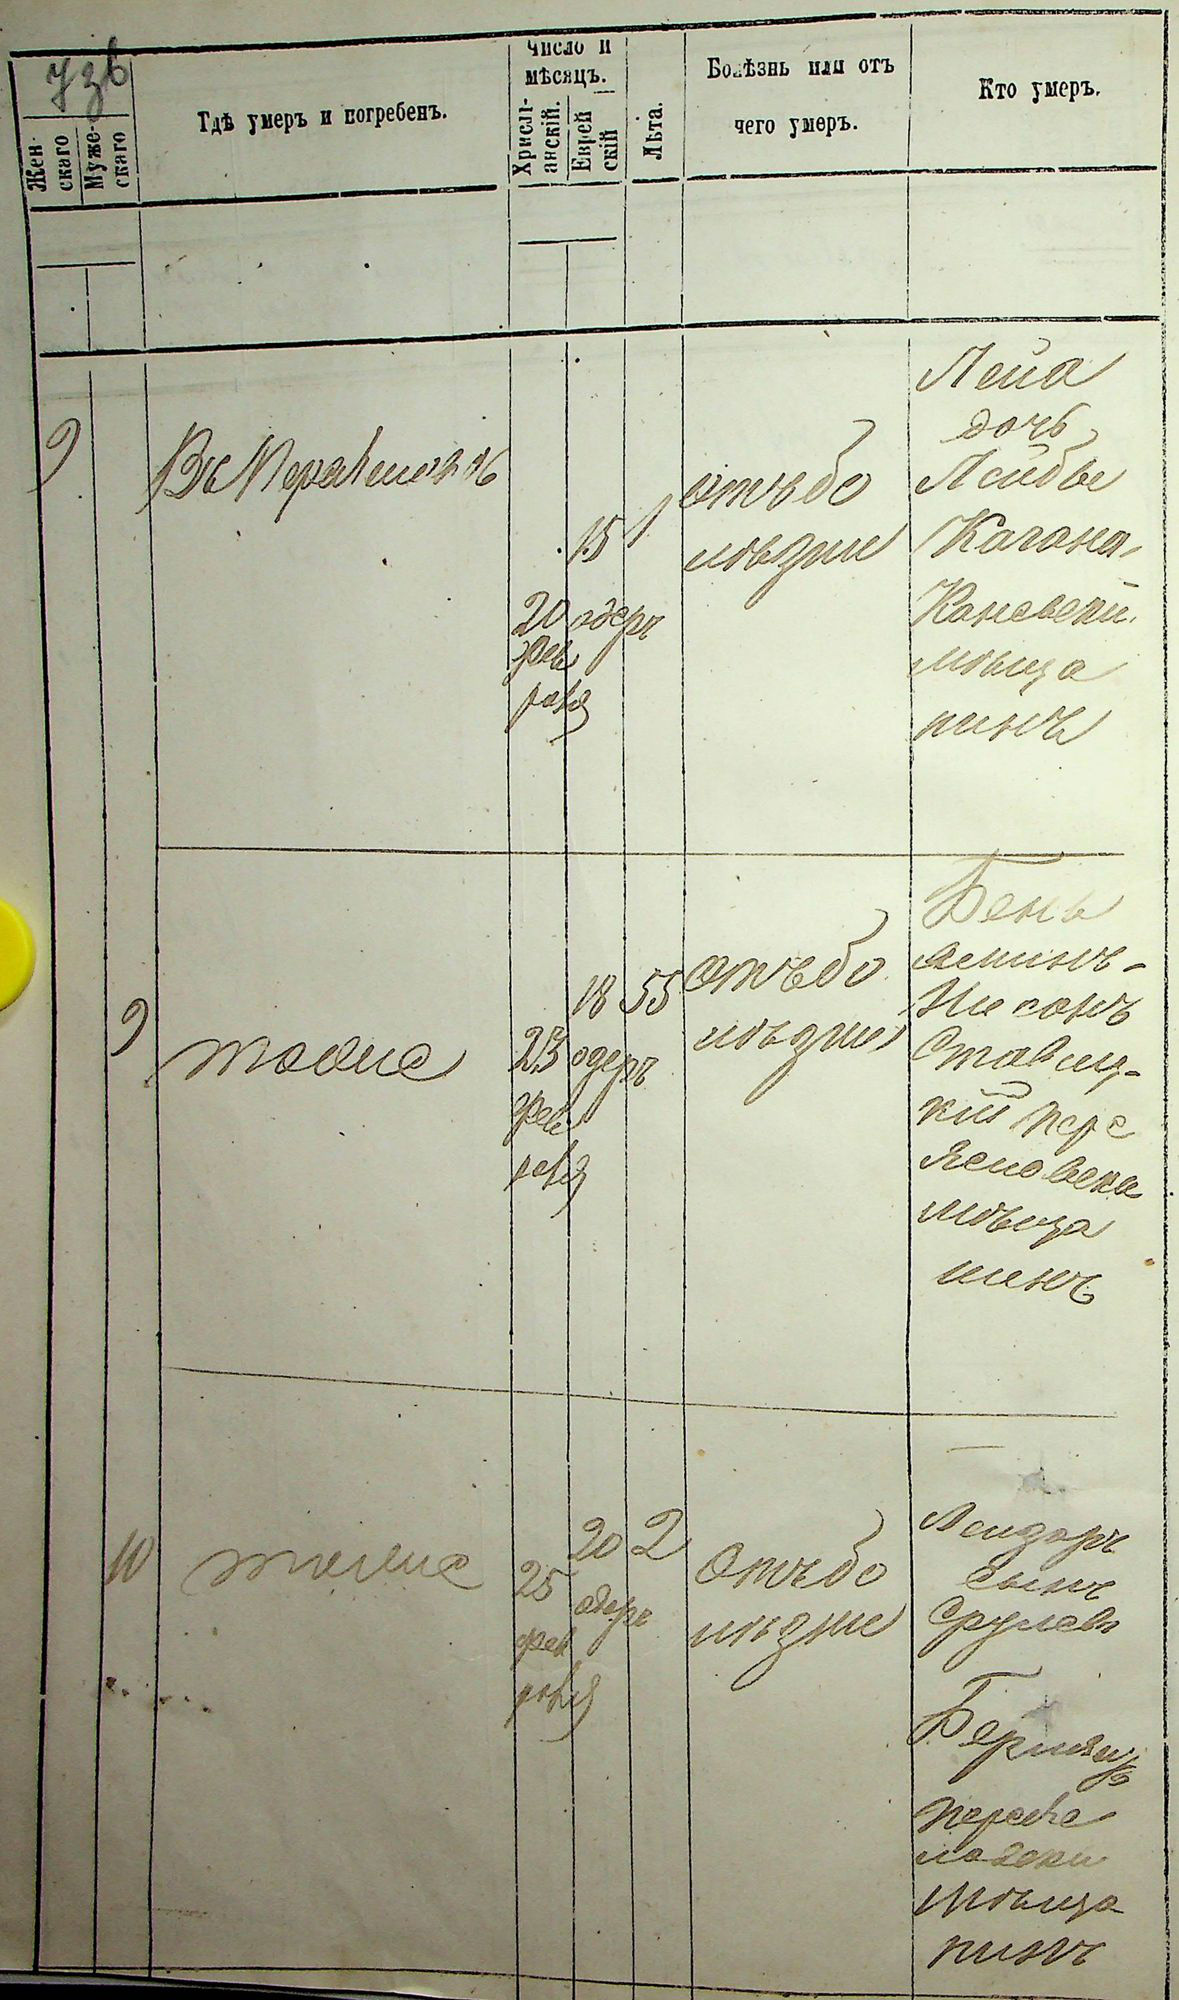 Жен-
скаго
Муже-
скаго
Гдѣ умеръ и погребенъ.
Число и
мѣсяцъ.
Христі-
анскій.
Еврей
скій
Лѣта.
Болѣзнь или отъ
чего умеръ.
Кто умеръ.
9
20
фев
раля
15
адеръ
1
отъ бо
лѣзни
Лейа
дочь
Лейбы
Кагана
Каневскій
мѣща
нинъ
9
тоже
23
фев
раля
18
адеръ
55
отъ бо
лѣзни
Бень
яминъ-
Нисонъ
Ставиц-
кій пере
яславскі
мѣща
нинъ
10
тоже
25
фев
раля
20
адеръ
2
отъ бо
лѣзни
сынъ
Срулевъ
мѣща
нинъ